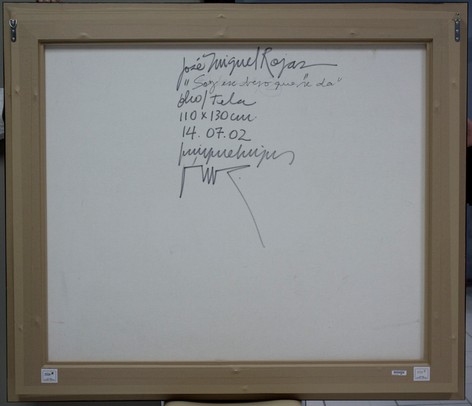 José Miguel Rojas
"Soy ese beso que se da"
óleo/Tela
110 x 130 cm.
14.07.02